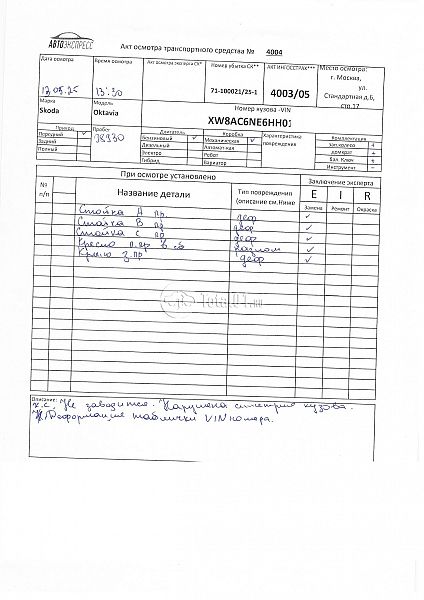 АВТОЭКСПРЕСС
Акт осмотра транспортного средства № 4004
Дата осмотра
Время осмотра
Акт осмотра эксперта СК*
Номер убытка СК**
АКТ ИНГОССТРАХ***
Место осмотра:
г. Москва,
ул.
Стандартная д.6,
стр.17
13.05.25
13:30
71-100021/25-1
4003/05
Марка
Модель
Номер кузова -VIN
Skoda
Oktavia
XW8AC6NE6HH01
Привод
Пробег
Двигатель
Коробка
Характеристика повреждения
Комплектация
Передний ✓
Бензиновый ✓
Механическая ✓
Зап.колесо +
Задний
Дизельный
Автоматная
домкрат +
Полный
Электро
Робот
Бал. Ключ +
Гибрид
Вариатор
Инструмент –
При осмотре установлено
Заключение эксперта
№ п/п
Название детали
Тип повреждения
(описание см.Ниже
Е I R
Замена Ремонт Окраска
Стойка А пр. деф ✓
Стойка В пр деф ✓
Стойка С пр деф ✓
Кресло п.пр в сб ✓
Крыло з.пр деф ✓
Total01.ru
Описание:
Не заводится. Нарушена симетрия кузова.
Деформация таблички VIN номера.